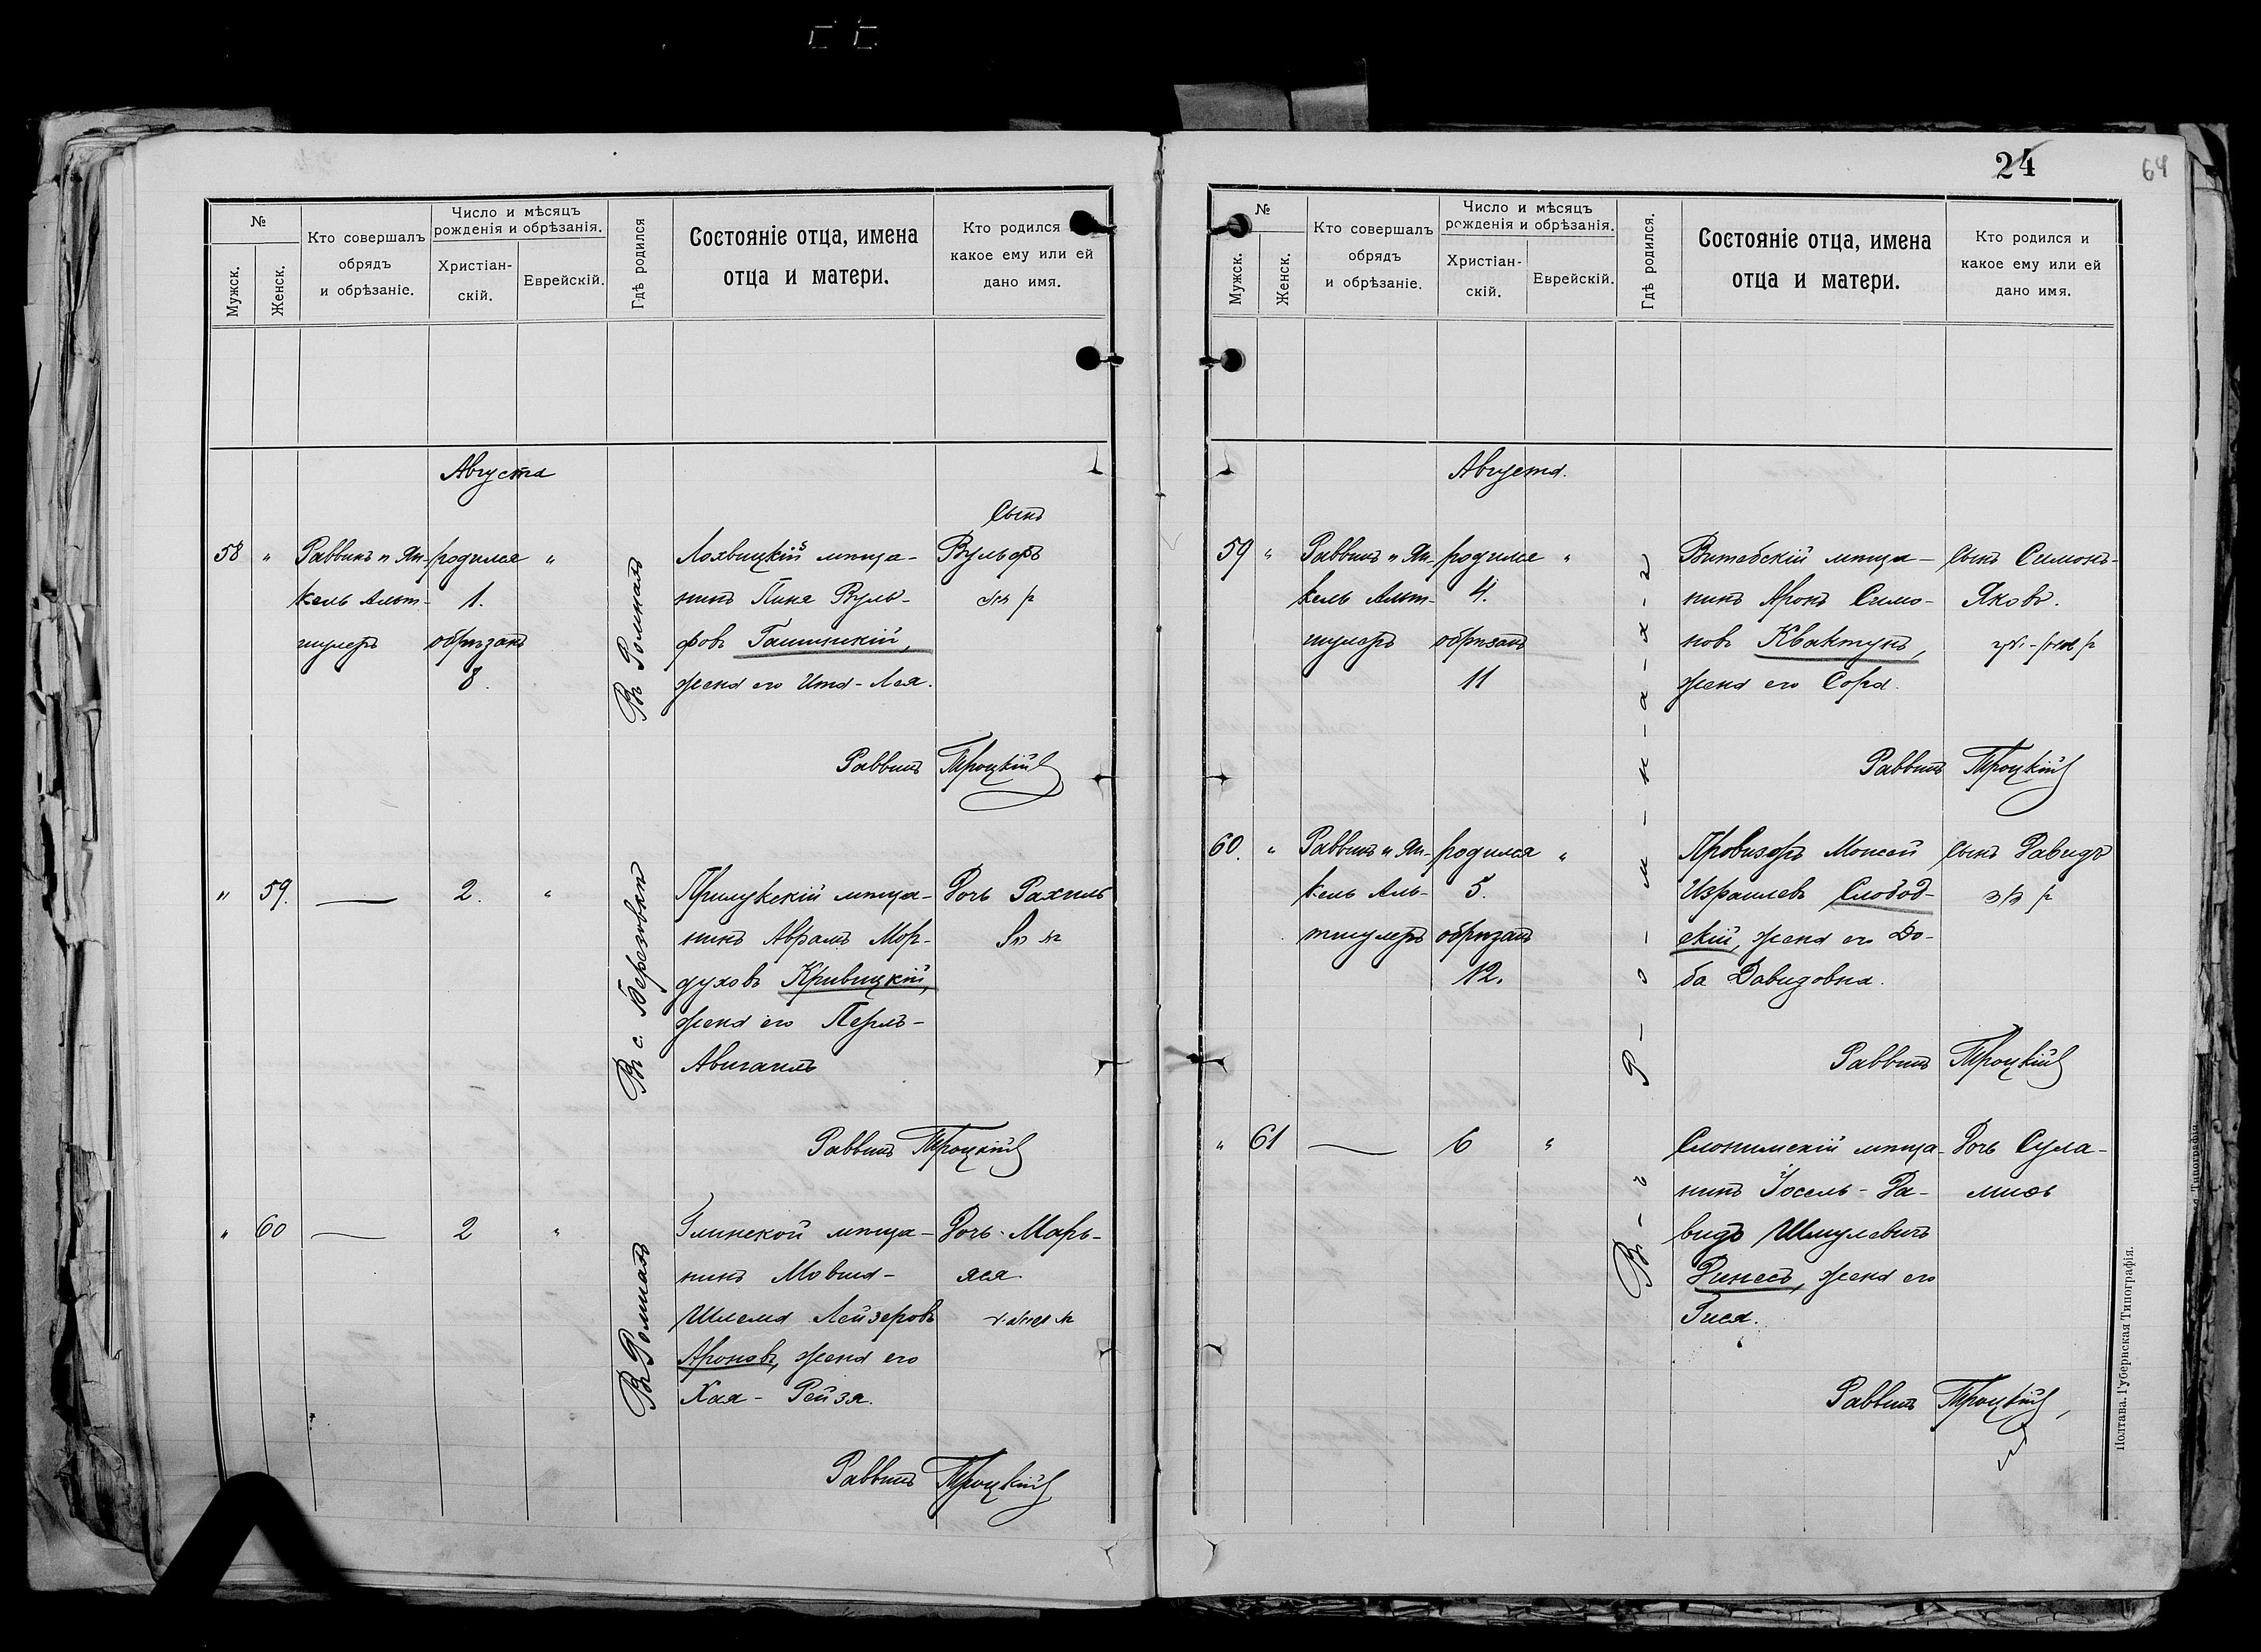 №
Мужск.
Женск.
Кто совершалъ
обрядъ
и обрѣзаніе.
Число и мѣсяцъ
рожденія и обрѣзанія.
Христіан-
скій.
Еврейскій.
Гдѣ родился
Состояніе отца, имена
отца и матери.
Кто родился
какое ему или ей
дано имя.
Августа
58 " Раввинъ и Ян- родился "
кель Альт- 1.
шулеръ обрѣзанъ
8.
Въ Ромнахъ
Лохвицкій мѣща-
нинъ Пиня Вуль-
фовъ
жена его Ита-Лея.
Сынъ
Вульфъ
Раввинъ Троцкій
" 59. — 2. "
Въ с. Березовкѣ
Прилукскій мѣща-
нинъ Абрамъ Мор-
духовъ Кривицкій,
жена его Перлъ-
Авигаилъ
Дочь Рахиль
Раввинъ Троцкій
" 60 — 2 "
Въ Ромнахъ
Глинской мѣща-
нинъ Мовша-
Шлема Лейзеровъ
Ароновъ, жена его
Хая - Рейзя.
Дочь Марь-
яся
Раввинъ Троцкій
24
64
№
Мужск.
Женск.
Кто совершалъ
обрядъ
и обрѣзаніе.
Число и мѣсяцъ
рожденія и обрѣзанія.
Христіан-
скій.
Еврейскій.
Гдѣ родился.
Состояніе отца, имена
отца и матери.
Кто родился и
какое ему или ей
дано имя.
Августа.
59 " Раввинъ и Ян- родился "
кель Альт- 4.
шулеръ обрѣзанъ
11
Витебскій мѣща-
нинъ Аронъ Симо-
новъ Квактунъ,
жена его Сора.
Сынъ Симонъ-
Яковъ.
Раввинъ Троцкій
60. " Раввинъ и Ян- родился "
кель Аль- 5.
тшулеръ обрѣзанъ
12.
Провизоръ Моисей
Израилевъ Слобод-
скій, жена его До-
ба Давидовна.
Сынъ Давидъ
Раввинъ Троцкій
" 61 — 6 "
Слонимскій мѣща-
нинъ Іосель - Да-
видъ Шмулевичъ
Динесъ, жена его
Гися.
Дочь Сула-
миѳь
Раввинъ Троцкій
Полтава. Губернская Типографія.